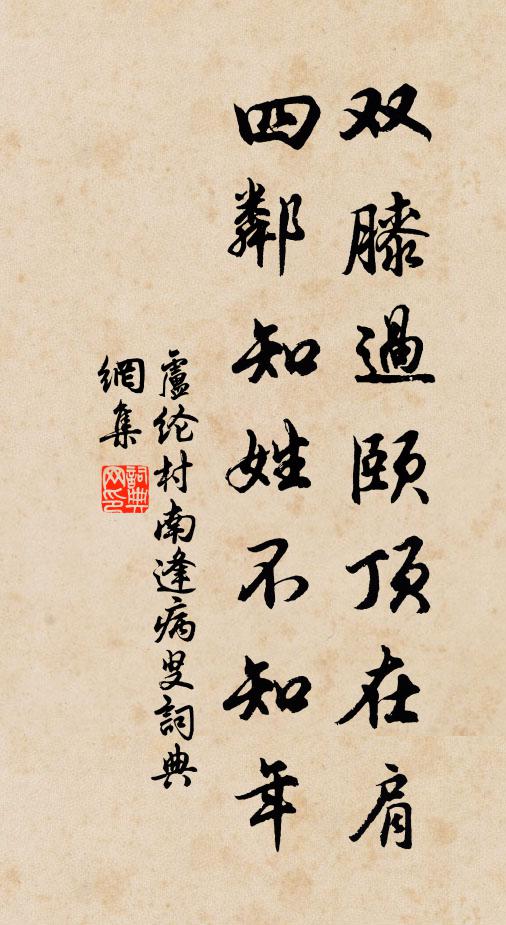 双膝過颐顶在肩
四鄰知姓不知年
盧纶村南逢病叟詞典
網集
詞典網印